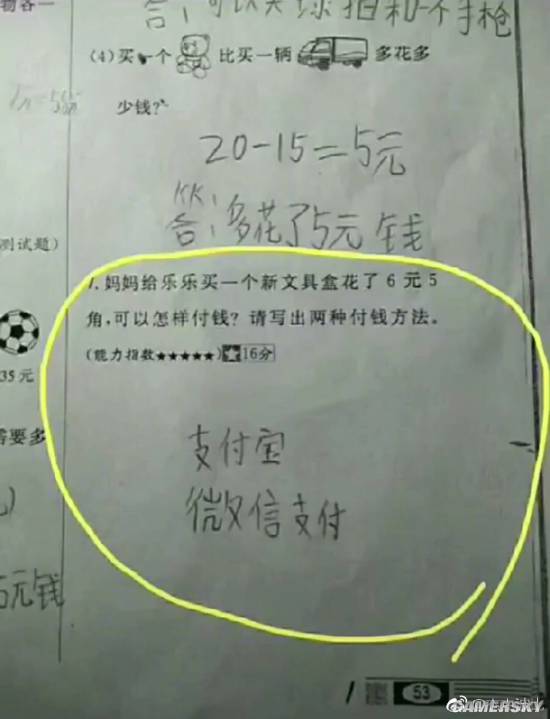 答:可以买球拍和一个手枪
(4)买一个 比买一辆 多花多
少钱?
20-15=5元
答:多花了5元钱
测试题)
7.妈妈给乐乐买一个新文具盒花了6元5
角,可以怎样付钱?请写出两种付钱方法。
(能力指数★★★★★)★16分
35元
需要多
支付宝
微信支付
5元钱
53
GAMERSKY